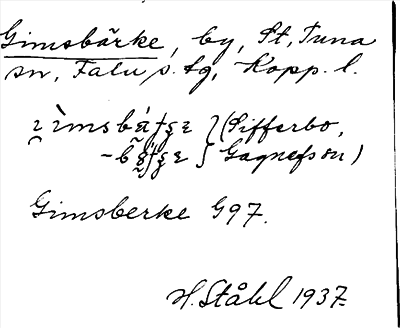 Gimsbärke, by, St. Tuna
sn, Falu s. tg, Kopp. l.
(Sifferbo,
Gagnefs sn)
Gimsberke G97.
H. Ståhl 1937.